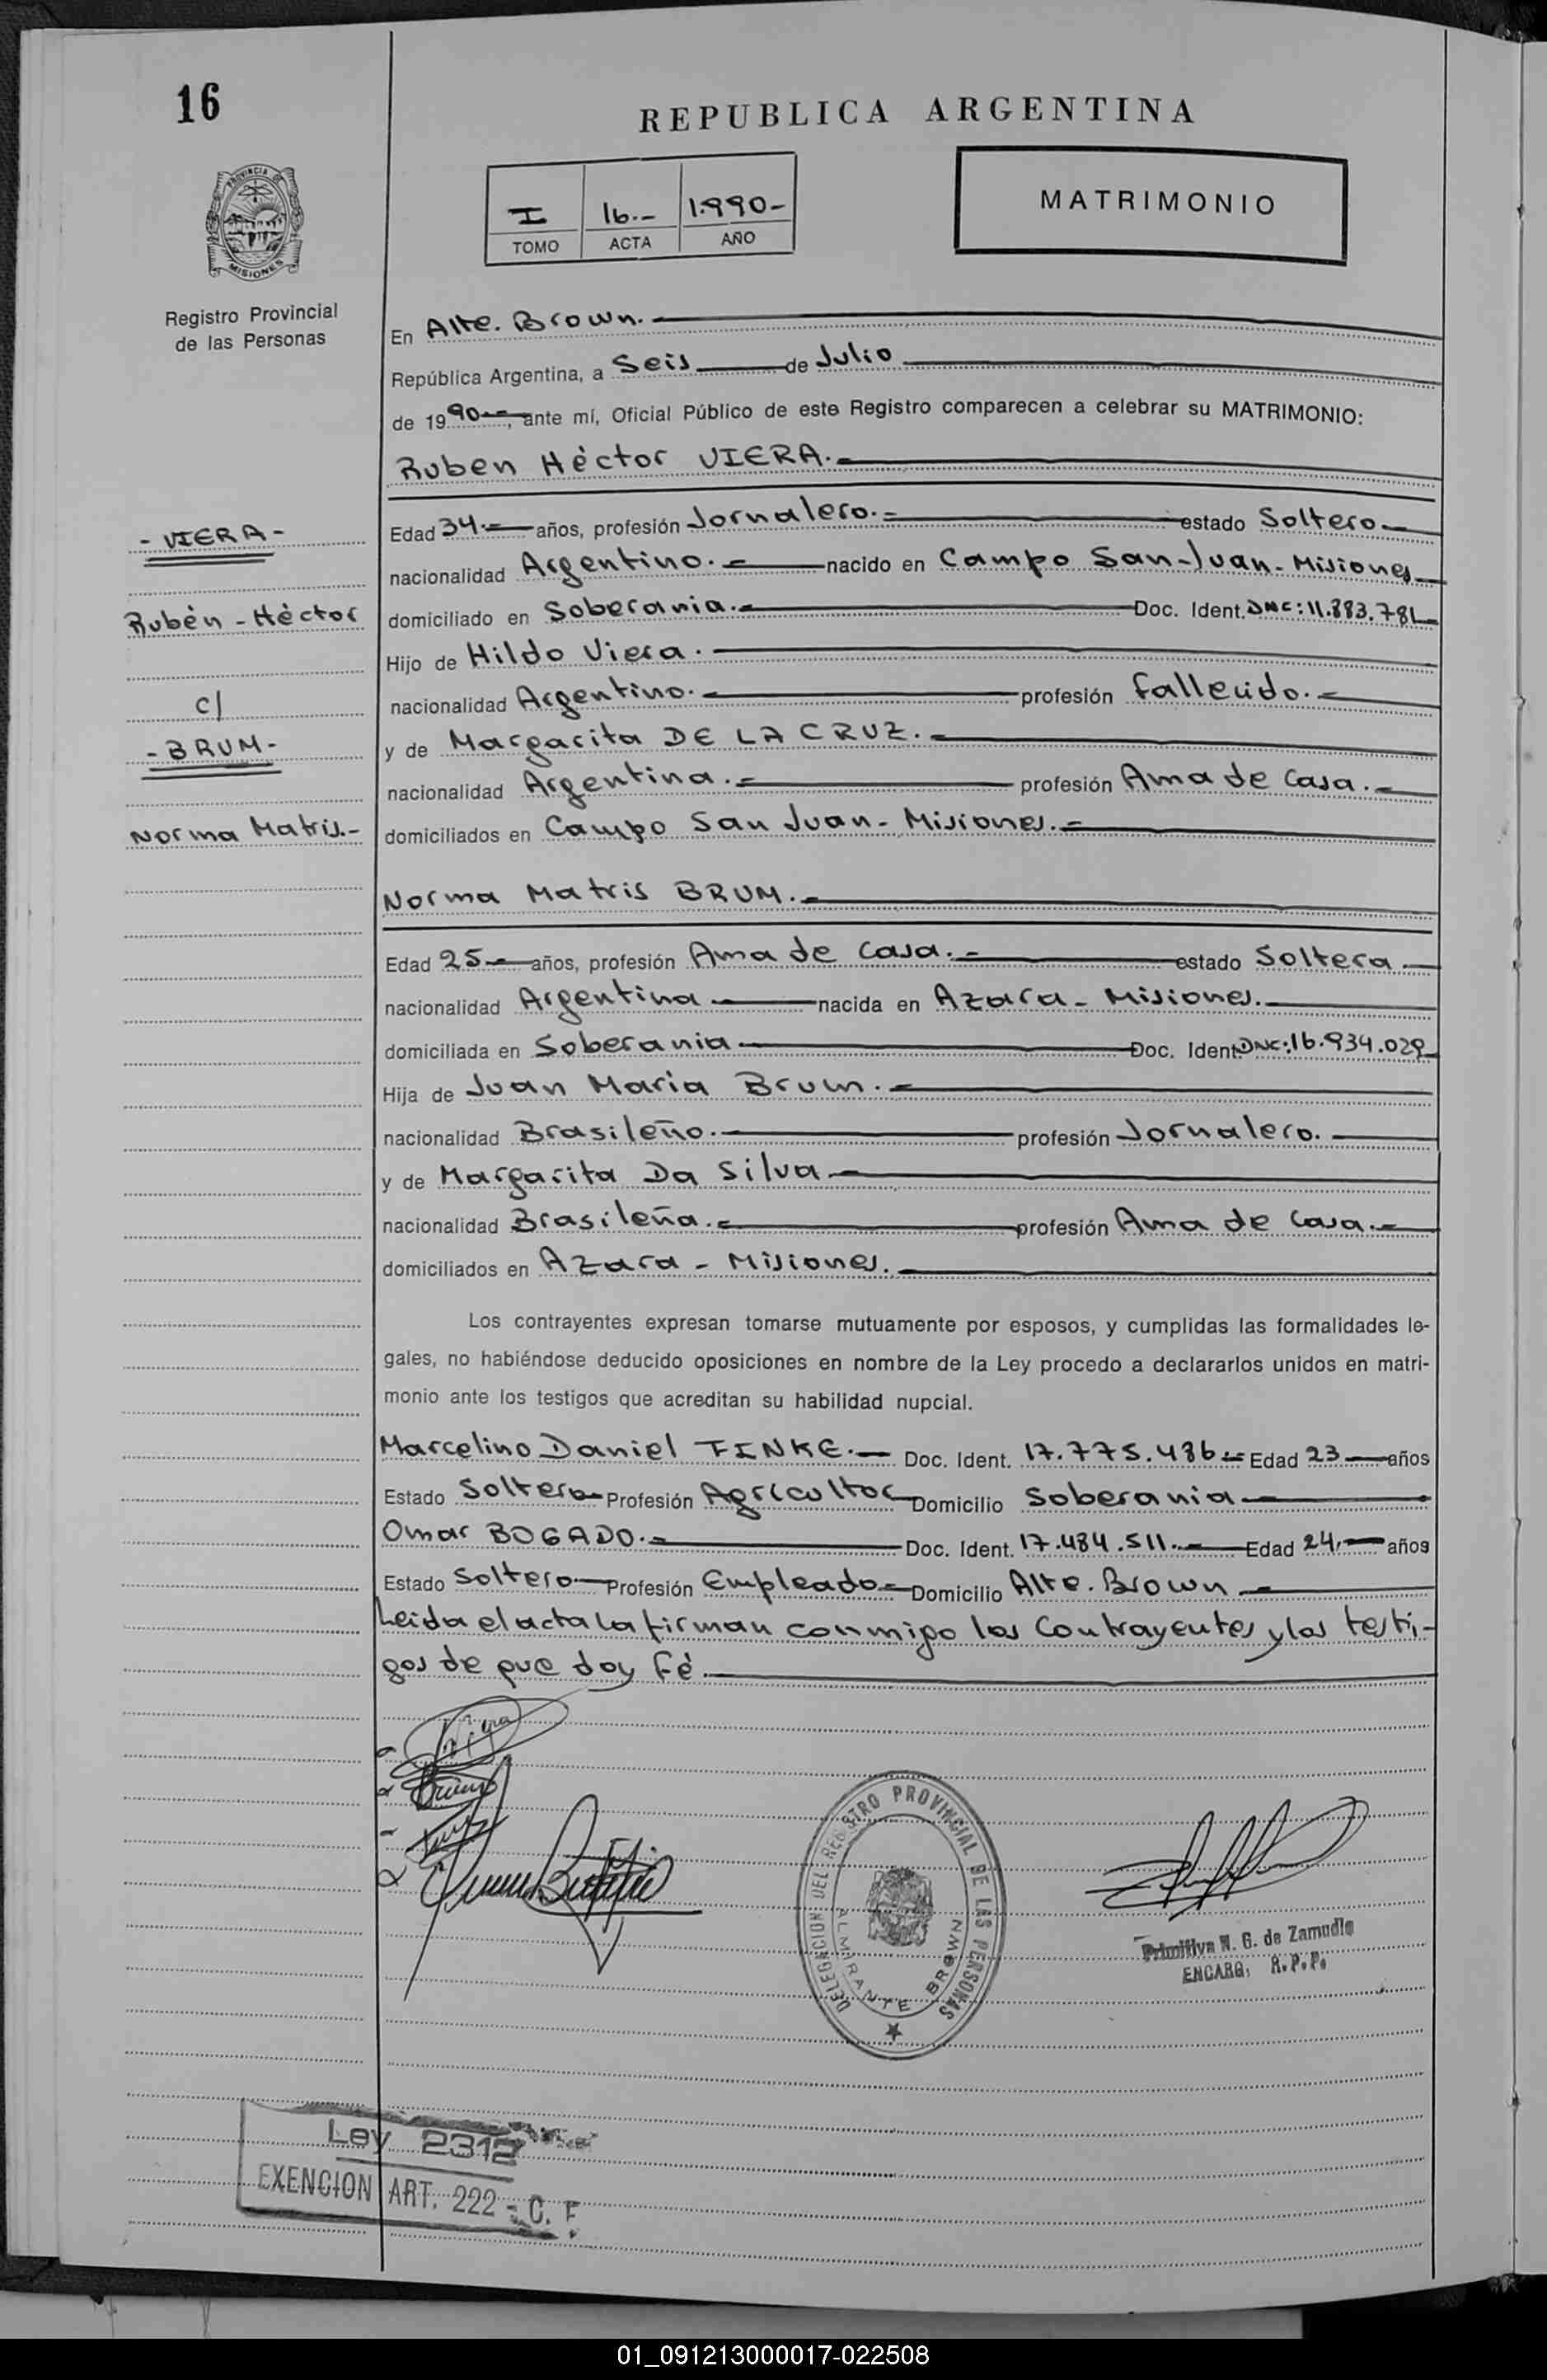 16
REPUBLICA ARGENTINA
I 16.- 1.990-
TOMO ACTA AÑO
MATRIMONIO
PROVINCIA DE
MISIONES
Registro Provincial
de las Personas
En Alte. Brown.
República Argentina, a Seis de Julio
de 1990, ante mí, Oficial Público de este Registro comparecen a celebrar su MATRIMONIO:
Ruben Héctor VIERA.
- VIERA -
Rubén - Héctor
c/
- BRUM -
Norma Matris.-
Edad 34.- años, profesión Jornalero.- estado Soltero
nacionalidad Argentino.- nacido en Campo San-Juan-Misiones
domiciliado en Soberania.- Doc. Ident. DNC: 11.883.781
Hijo de Hildo Viera.
nacionalidad Argentino. profesión fallecido.-
y de Margarita DE LA CRUZ.-
nacionalidad Argentina.- profesión Ama de Casa.-
domiciliados en Campo San Juan-Misiones.-
Norma Matris BRUM.-
Edad 25 años, profesión Ama de Casa.- estado Soltera
nacionalidad Argentina nacida en Azara- Misiones.
domiciliada en Soberania Doc. Ident. DNC: 16.934.029
Hija de Juan Maria Brum.-
nacionalidad Brasileño. profesión Jornalero.
y de Margarita Da Silva
nacionalidad Brasileña.- profesión Ama de Casa.-
domiciliados en Azara - Misiones.
Los contrayentes expresan tomarse mutuamente por esposos, y cumplidas las formalidades le-
gales, no habiéndose deducido oposiciones en nombre de la Ley procedo a declararlos unidos en matri-
monio ante los testigos que acreditan su habilidad nupcial.
Marcelino Daniel FINKE.- Doc. Ident. 17.775.436 Edad 23 años
Estado Soltero Profesión Agricultor Domicilio Soberania
Omar BOGADO.- Doc. Ident. 17.484.511.- Edad 24.- años
Estado Soltero Profesión Empleado Domicilio Alte. Brown
Leida el acta la firman conmigo los Contrayentes y los testi-
gos de que doy Fé.
DELEGACION DEL REGISTRO PROVINCIAL DE LAS PERSONAS
ALMIRANTE BROWN
Primitiva N. G. de Zamudio
ENCARG. R.P.P.
Ley 2312
EXENCION ART. 222 - C. F
01_091213000017-022508